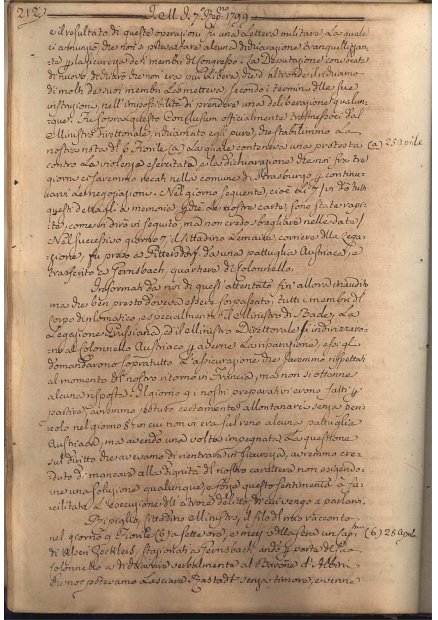 212
I. M. D. 7. 1799
e il risultato di queste operazioni fu una lettera militare la quale
ci annunziò che non si poteva fare alcuna dichiarazione tranquillizzan-
te la sicurezza de' membri del congresso. La Deputazione convocata
di nuovo, dichiarò che non era più libera, che d'altronde il richiamo
di molti de' suoi membri la metteva secondo i termini delle sue
istruzioni nell'impossibilità di prendere una deliberazione qualun-
que. Fu sopra questo conclusum officialmente trasmessoci dal
Ministro direttoriale, richiamato egli pure, che stabilimmo la
nostra nota di 6 Fiorile (a) la quale conteneva una protesta
(a) 25 aprile
contro la violenza esercitata e la dichiarazione che noi fra tre
giorni ci saremmo recati nella comune di Strasburgo continue
le negoziazione. Nel giorno seguente, cioè il 7 / io do tutti
questi dettagli a memoria, che le nostre carte sono state rapi-
te, come vi dirò in seguito, ma non credo sbagliare nelle date /
Nel successivo giorno 7 il Cittadino Lemaire, corriere della lega-
zione, fu preso a Plittersdorf da una pattuglia Austriaca, e
trasferito a Gernsbach, quartiere del colonnello.
Informati da noi di quest'attentato fin'allora inaudito
ma che ben presto doveva essere sorpassato, tutti i membri del
corpo diplomatico, e specialmente il Ministro di Bade, la
Legazione Prussiana, ed il Ministro Direttorale si indirizzero-
no al colonnello Austriaco averne la riparazione, e poi gli
domandarono sopratutto l'assicurazione che saremmo rispettati
al momento del nostro ritorno in Francia, ma non si ottenne
alcuna risposta. Il giorno 9 i nostri preparativi erano fatti
partire, avremmo potuto certamente allontanarci senza peri-
colo nel giorno 8 in cui non vi era sul reno alcuna pattuglia
Austriaca, ma avendo una volta impegnata la questione
sul diritto che avevamo di rientrare in sicurezza, avremmo cre-
duto di mancare alla dignità del nostro carattere non esigendo-
ne una soluzione qualunque, e forse questo sentimento à fa-
cilitata l'esecuzione dell'atroce delitto di cui vengo a parlarvi.
Ripiglio, Cittadino Ministro, il filo del mio racconto
nel giorno 9 Fiorile (6) a sette ore e mezzo della sera un capi
(6) 28 aprile
di Ussari Szeklers, stazionati a Gernsbach, andò parte del suo
colonnello a dichiarare verbalmente al Barone d'Albini
che noi potevamo lasciare Rastadt senza timore, e venne